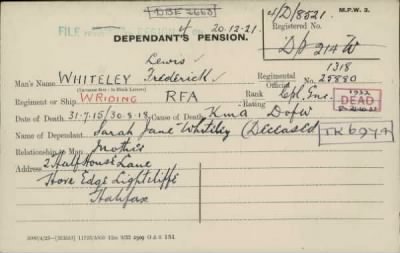 DBE 2663
FILE 4 20.12.21.
4/D/8521.
M.P.W. 3.
Registered No.
DEPENDANT'S PENSION.
D/P 214 W
Lewis
Man's Name WHITELEY Frederick
(Surname first - in Block Letters)
Regimental
Official No.
1318
25880
Regiment or Ship W RIDING RFA
Rank
Rating
Cpl. Gnr.
1932
DEAD
Date of Death 31.7.15/30.8.18 Cause of Death Kina Dofw
Name of Dependant Sarah Jane Whiteley (Deceased)
Relationship to Man Mother
Address 2 Half House Lane
Hove Edge Lightcliffe
Halifax